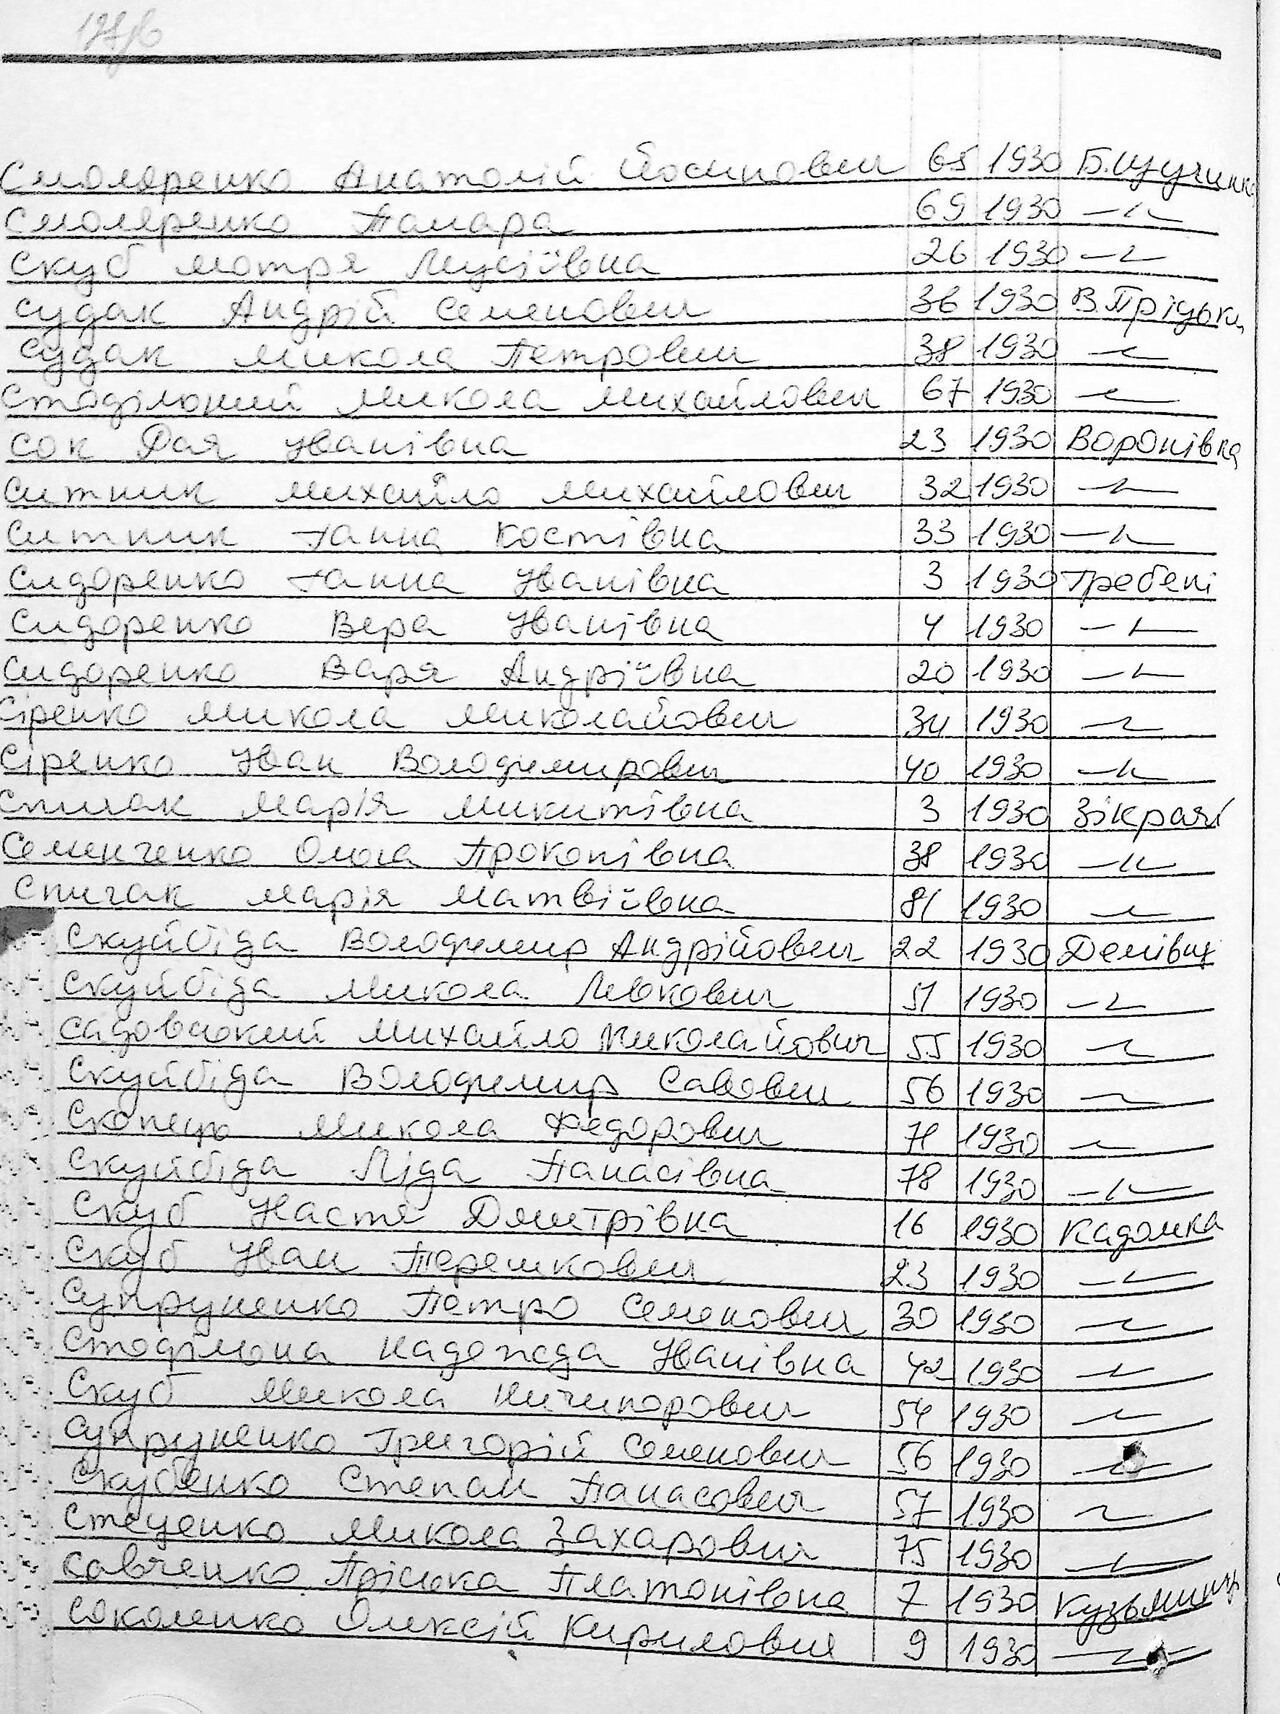 Смоляренко Анатолій Йосипович 65 1930 Б.Щучинка
Смоляренко Тамара 69 1930 —"—
Скуб Мотря Мусіївна 26 1930 —"—
Судак Андрій Семенович 36 1930 В.Пріцьки
Судак Микола Петрович 38 1930 —"—
Стодільний Микола Михайлович 67 1930 —"—
Сок Дая Іванівна 23 1930 Воронівка
Ситник Михайло Михайлович 32 1930 —"—
Ситник Ганна Костівна 33 1930 —"—
Сидоренко Ганна Іванівна 3 1930 Гребені
Сидоренко Вера Іванівна 4 1930 —"—
Сидоренко Варя Андріївна 20 1930 —"—
Сіренко Микола Миколайович 34 1930 —"—
Сіренко Іван Володимирович 40 1930 —"—
Спичак Марія Микитівна 3 1930 Зікрачі
Семенченко Ольга Прокопівна 38 1930 —"—
Спичак Марія Матвіївна 81 1930 —"—
Скуйбіда Володимир Андрійович 22 1930 Демівщ
Скуйбіда Микола Левкович 51 1930 —"—
Садовський Михайло Миколайович 55 1930 —"—
Скуйбіда Володимир Савович 56 1930 —"—
Скопець Микола Федорович 71 1930 —"—
Скуйбіда Ліда Панасівна 78 1930 —"—
Скуб Настя Дмитрівна 16 1930 Кадомка
Скуб Іван Терешкович 23 1930 —"—
Супруненко Петро Семенович 30 1930 —"—
Стодільна Надежда Іванівна 42 1930 —"—
Скуб Микола Ничипорович 54 1930 —"—
Супруненко Григорій Семенович 56 1930 —"—
Скубенко Степан Панасович 57 1930 —"—
Стеценко Микола Захарович 75 1930 —"—
Савченко Пріська Платонівна 7 1930 Кузьминці
Соколенко Олексій Кирилович 9 1930 —"—